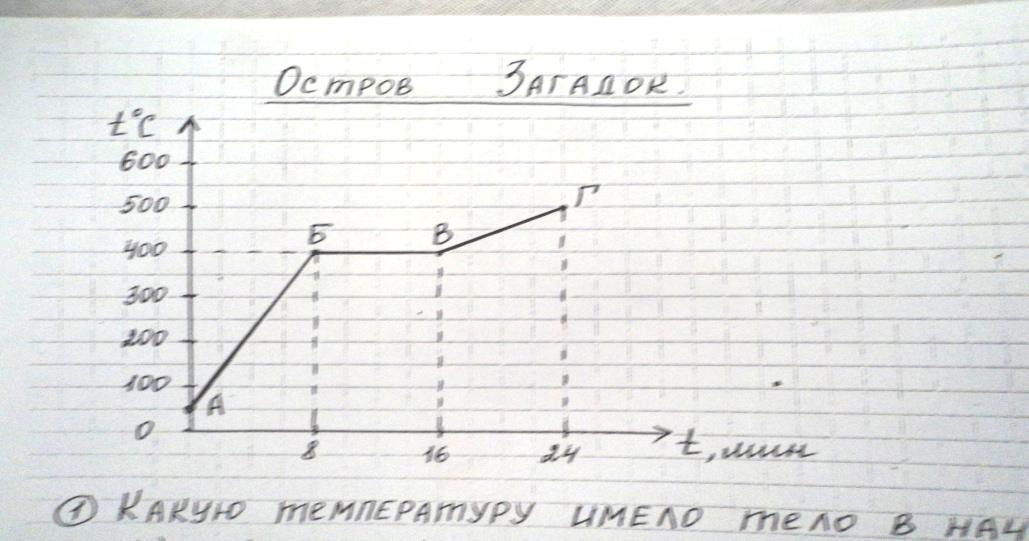 Остров Загадок.
t°C
600
500
400
300
200
100
0
А
Б
В
Г
8 16 24 t, мин
① Какую температуру имело тело в нач